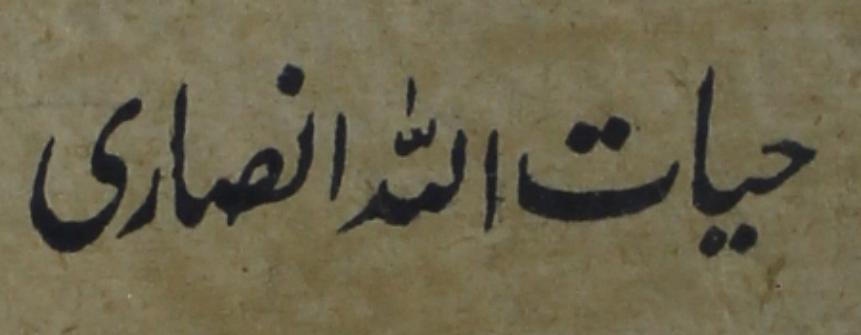 حیات اللہ انصاری